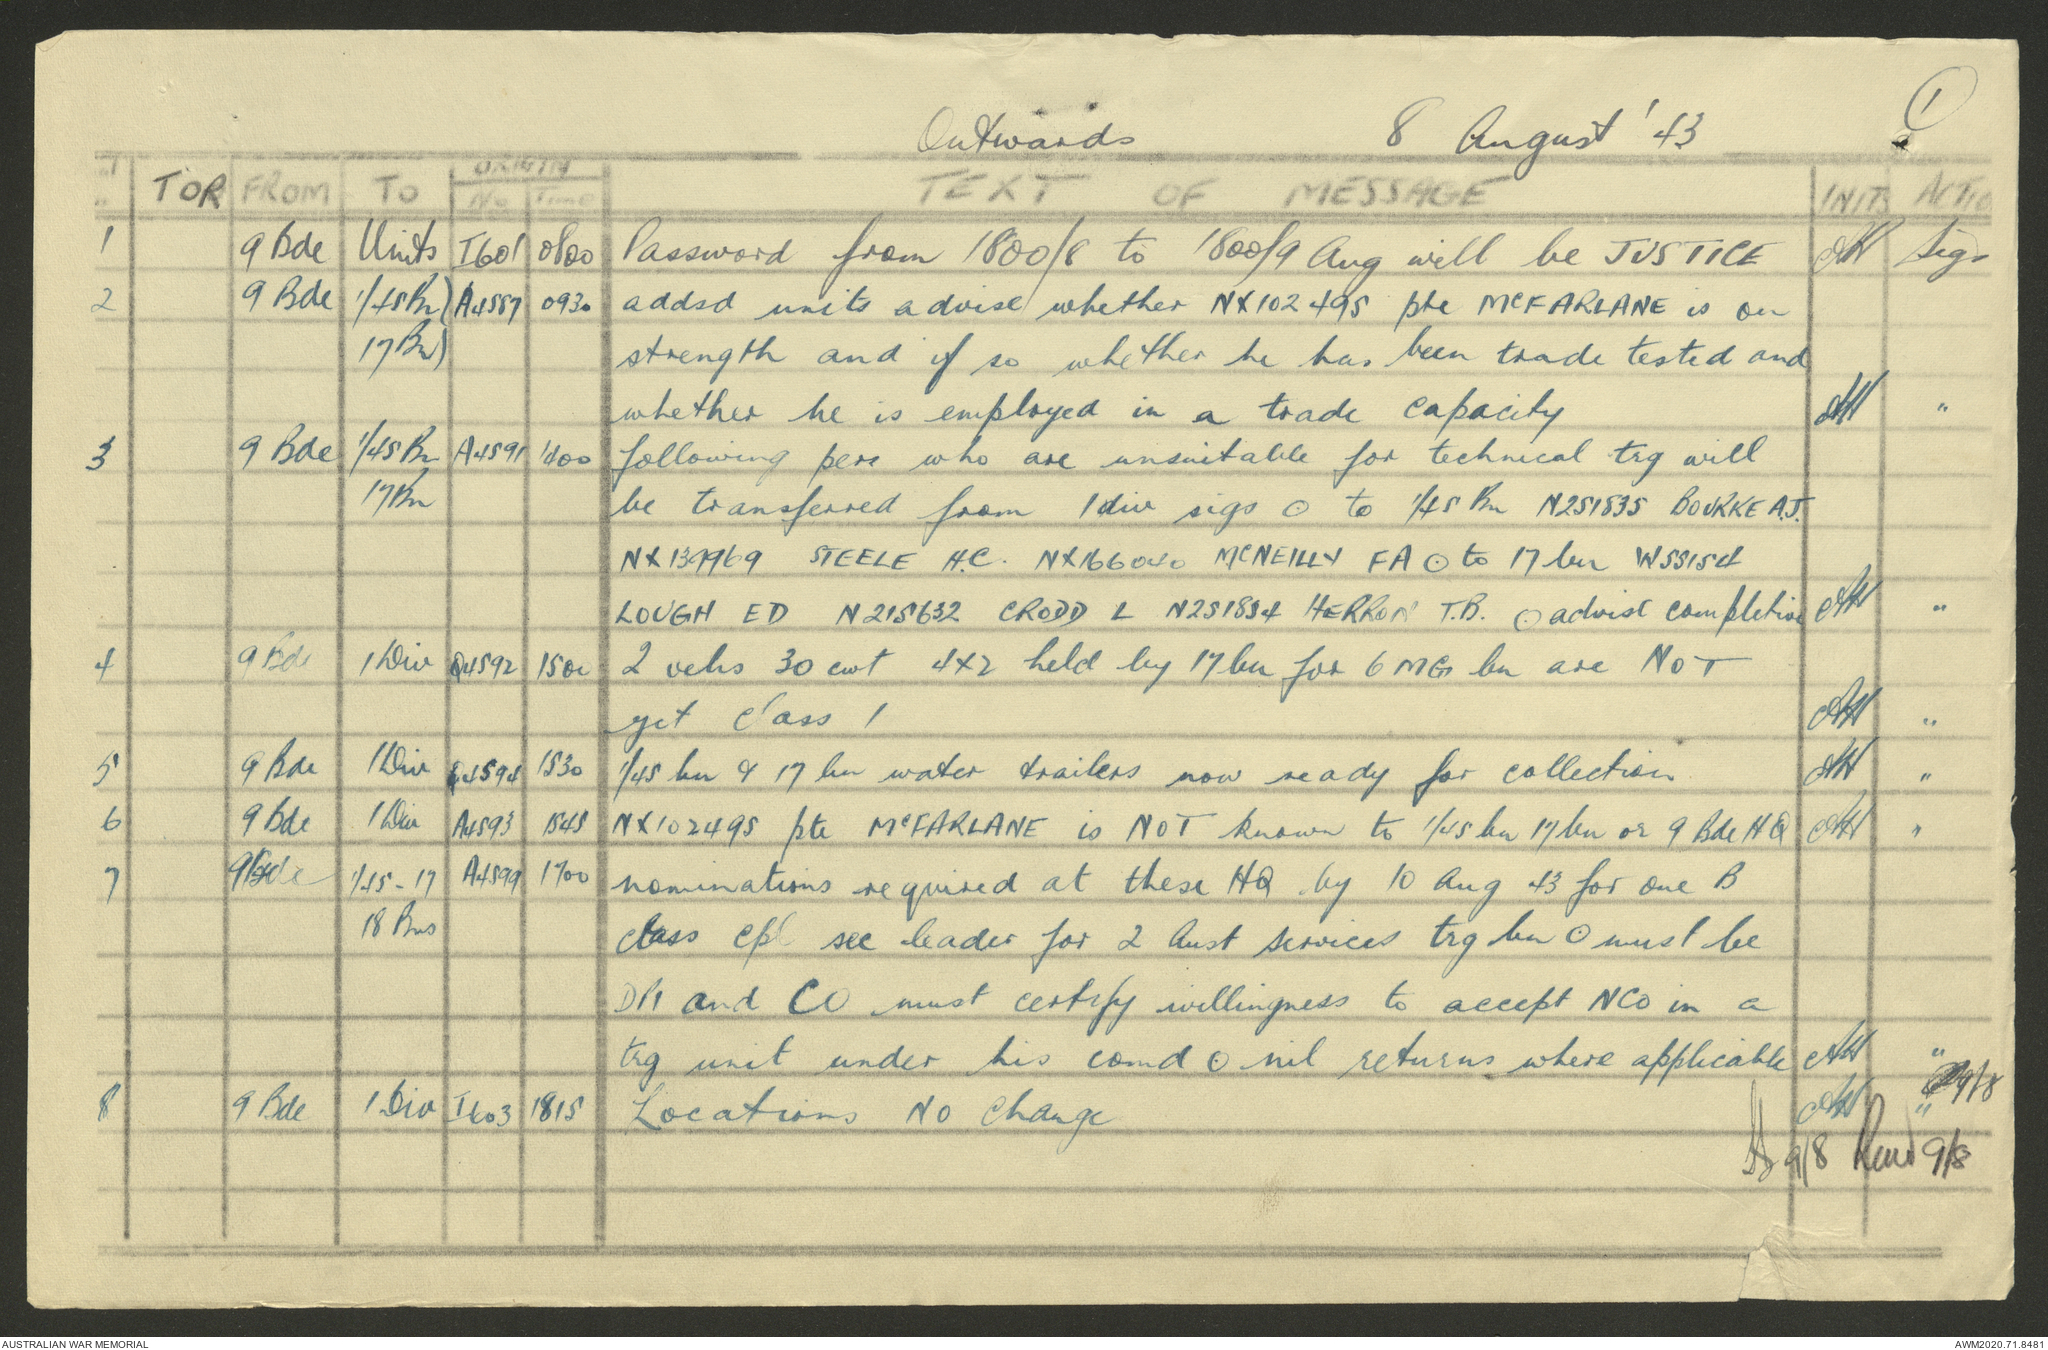 1
Outwards 8 August '43
TOR FROM TO ORIGIN No Time TEXT OF MESSAGE INITS ACTIO
1 9 Bde Units I601 0800 Password from 1800/8 to 1800/9 Aug will be JUSTICE Sigs
2 9 Bde 1/45 Bn) A4587 0930 addsd units advise whether NX102495 pte McFARLANE is on
17 Bn) strength and if so whether he has been trade tested and
whether he is employed in a trade capacity "
3 9 Bde 1/45 Bn A4591 1400 following pers who are unsuitable for technical trg will
17 Bn be transferred from 1 div sigs ⊙ to 1/45 Bn N251835 BOURKE A.J.
NX139969 STEELE H.C. NX166040 McNEILLY FA ⊙ to 17 bn W55154
LOUGH ED N215632 CRODD L N251834 HERRON T.B. ⊙ advise completion "
4 9 Bde 1 Div Q4592 1500 2 vehs 30 cwt 4x2 held by 17 bn for 6 MG bn are NOT
yet class 1 "
5 9 Bde 1 Div Q4594 1530 1/45 bn & 17 bn water trailers now ready for collection "
6 9 Bde 1 Div A4593 1545 NX102495 pte McFARLANE is NOT known to 1/45 bn 17 bn or 9 Bde HQ "
7 9 Bde 1/45-17 A4599 1700 nominations required at these HQ by 10 Aug 43 for one B
18 Bns class cpl sec leader for 2 Aust services trg bn ⊙ must be
DP1 and CO must certify willingness to accept NCO in a
trg unit under his comd ⊙ nil returns where applicable "
9/8
8 9 Bde 1 Div I603 1815 Locations NO change "
9/8 9/8
AUSTRALIAN WAR MEMORIAL AWM2020.71.8481